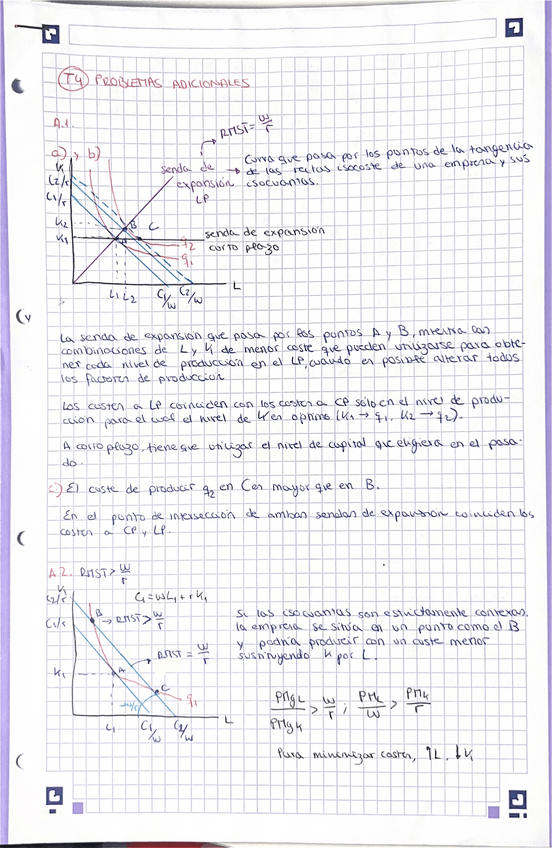 T4 PROBLEMAS ADICIONALES
A.1.
RMST = w/r
a) y b)
K
C2/r
C1/r
K2
K1
senda de expansión LP
→ Curva que pasa por los puntos de la tangencia
de las rectas isocoste de una empresa y sus
isocuantas.
B
C
A
q2
q1
senda de expansión
corto plazo
L1 L2
C1/w
C2/w
L
La senda de expansión que pasa por los puntos A y B, muestra las
combinaciones de L y K de menor coste que pueden utilizarse para obte-
ner cada nivel de producción en el LP, cuando es posible alterar todos
los factores de producción
Los costes a LP coinciden con los costes a CP sólo en el nivel de produ-
cción para el cual el nivel de K es óptimo (K1 → q1, K2 → q2).
A corto plazo, tiene que utilizar el nivel de capital que eligiera en el pasa-
do.
c) El coste de producir q2 en C es mayor que en B.
En el punto de intersección de ambas sendas de expansión coinciden los
costes a CP y LP.
A.2. RMST > w/r
K
C2/r
C1/r
C1 = wL1 + rK1
B
→ RMST > w/r
RMST = w/r
K1
A
C
q1
L1
C1/w
C2/w
L
Si las isocuantas son estrictamente convexas,
la empresa se sitúa en un punto como el B
y podría producir con un coste menor
sustituyendo K por L.
PMgL/PMgK > w/r ; PML/w > PMK/r
Para minimizar costes, ↑L, ↓K